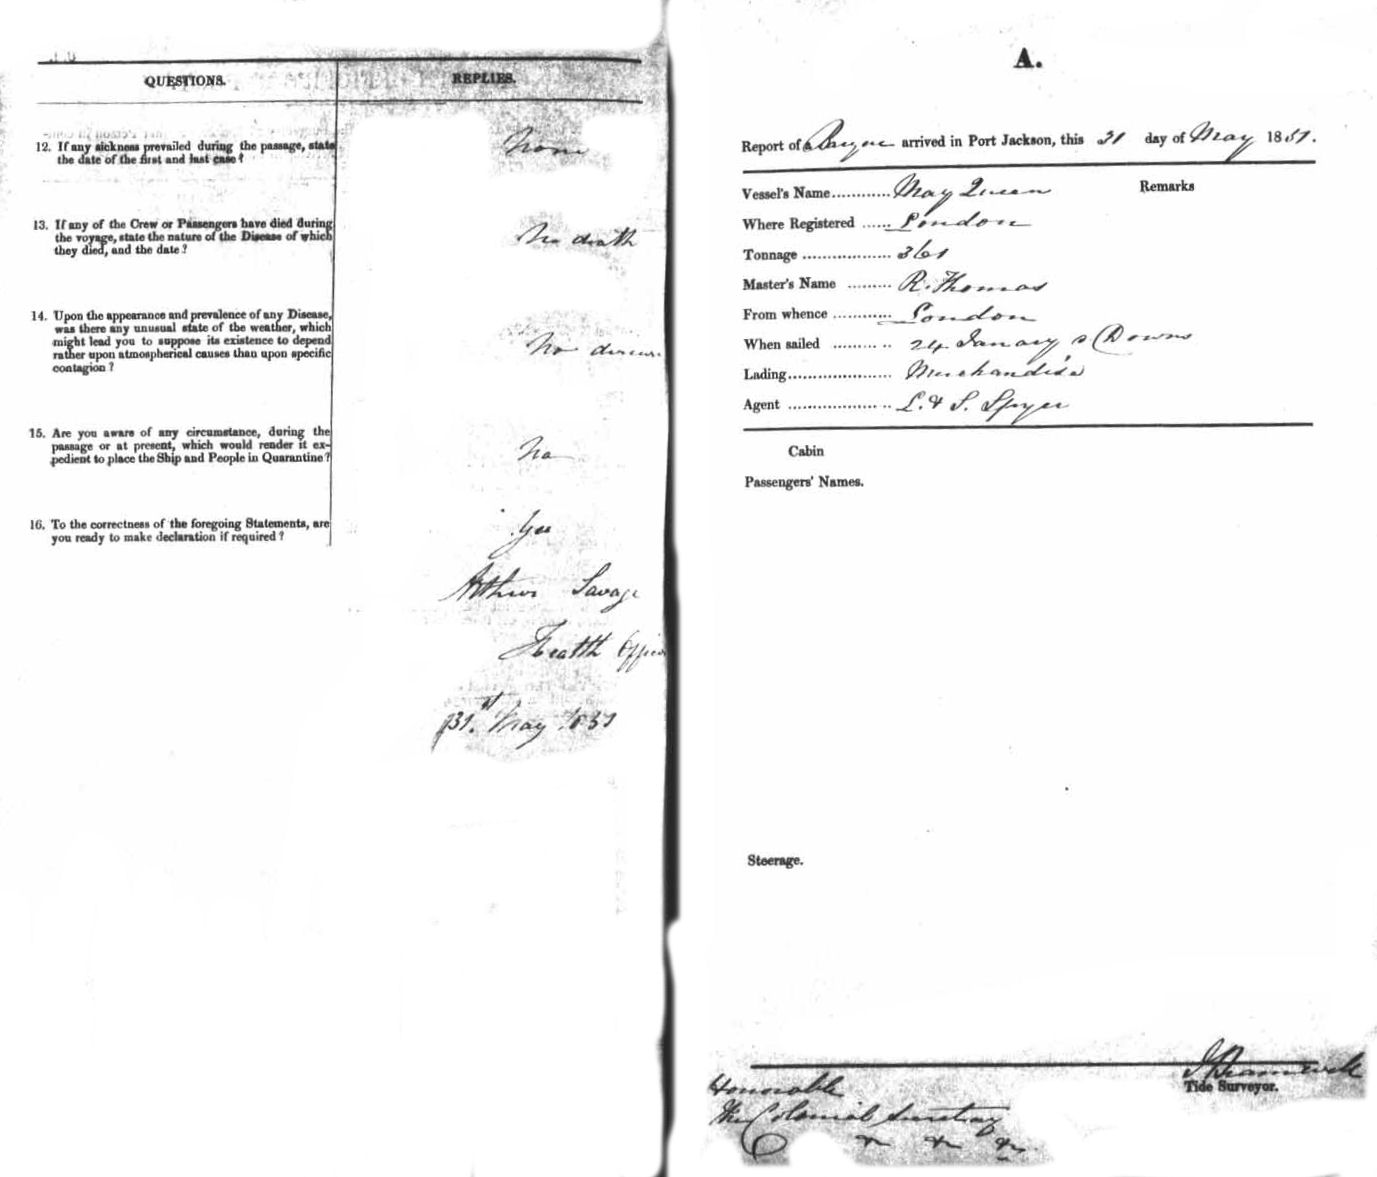 QUESTIONS.
REPLIES.
12. If any sickness prevailed during the passage, state
the date of the first and last case?
None
13. If any of the Crew or Passengers have died during
the voyage, state the nature of the Disease of which
they died, and the date?
No death
14. Upon the appearance and prevalence of any Disease,
was there any unusual state of the weather, which
might lead you to suppose its existence to depend
rather upon atmospherical causes than upon specific
contagion?
No disease
15. Are you aware of any circumstance, during the
passage or at present, which would render it ex-
pedient to place the Ship and People in Quarantine?
No
16. To the correctness of the foregoing Statements, are
you ready to make declaration if required?
Yes
Arthur Savage
Health Officer
31st May 1851
A.
Report of a Barque arrived in Port Jackson, this 31 day of May 1851.
Vessel's Name............ May Queen
Remarks
Where Registered ...... London
Tonnage .................. 361
Master's Name ......... R. Thomas
From whence ............ London
When sailed ......... .. 24 January & Downs
Lading..................... Merchandise
Agent .................. .. L. & S. Spyer
Cabin
Passengers' Names.
Steerage.
Tide Surveyor.
Honorable
The Colonial Secretary
&c &c &c